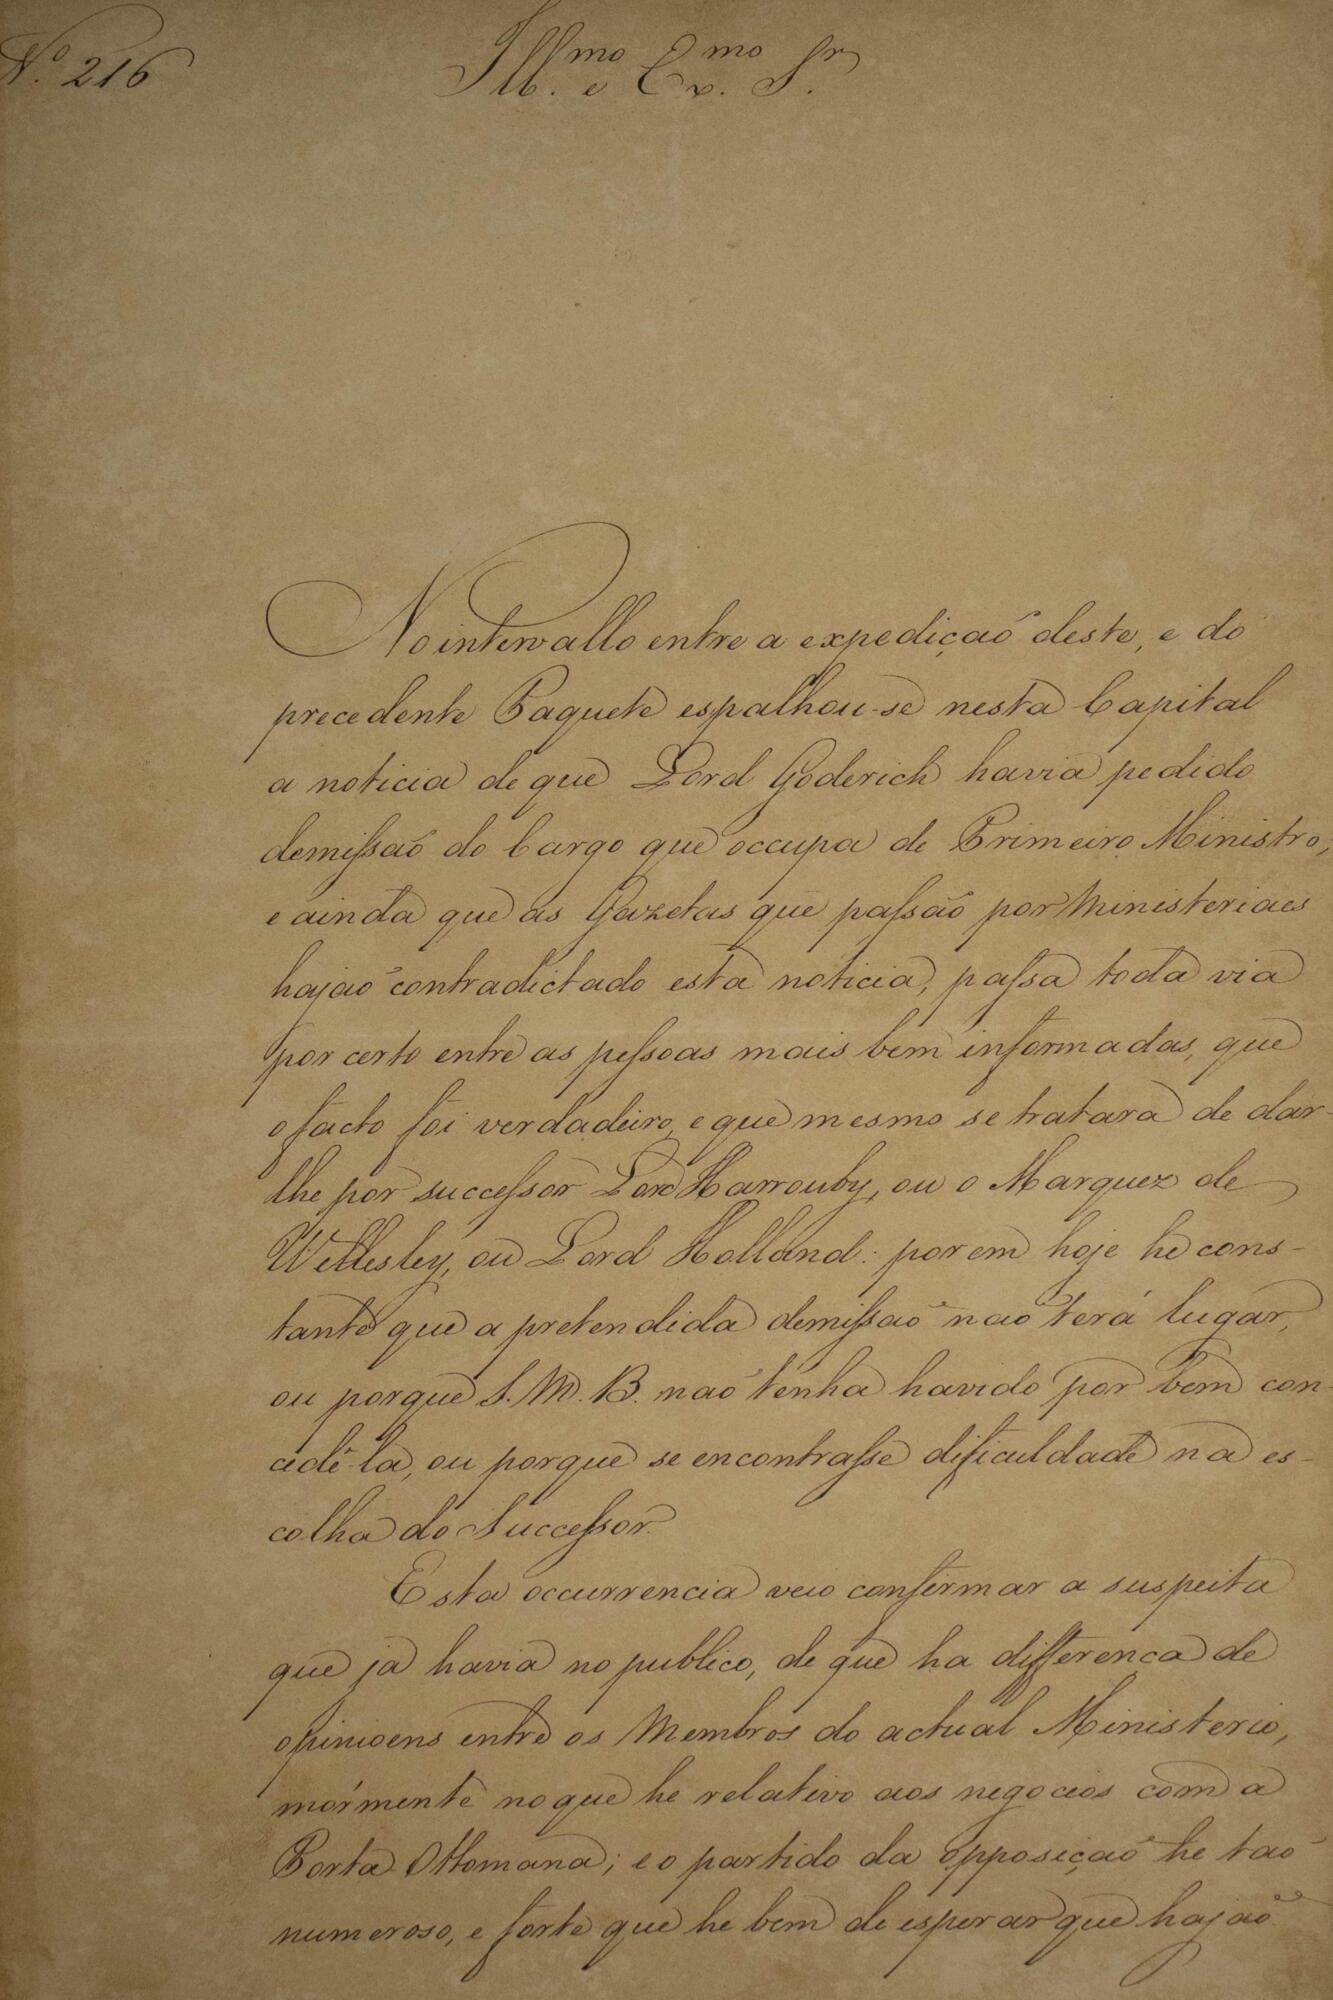 N.º 216
Ill.mo e Ex.mo Sr.
No intervallo entre a expediçaõ deste, e do
precedente Paquete espalhou-se nesta Capital
a noticia de que Lord Goderich havia pedido
demissaõ do Cargo que occupa de Primeiro Ministro,
e ainda que as Gazetas que passaõ por Ministeriaes
hajaõ contradictado esta noticia, passa toda via
por certo entre as pessoas mais bem informadas, que
o facto foi verdadeiro, e que mesmo se tratara de dar-
lhe por successor Lord Harrouby, ou o Marquez de
Wellesley, ou Lord Holland: porem hoje he cons-
tante que a pretendida demissaõ naõ terá lugar,
ou porque S.M.B. naõ tenha havido por bem con-
cedê-la, ou porque se encontrasse dificuldade na es-
colha do Successor.
Esta occurrencia veio confirmar a suspeita
que ja havia no publico, de que ha differença de
opinioens entre os Membros do actual Ministerio,
mórmente no que he relativo aos negocios com a
Porta Ottomana; e o partido da opposiçaõ he taõ
numeroso, e forte que he bem de esperar que hajaõ